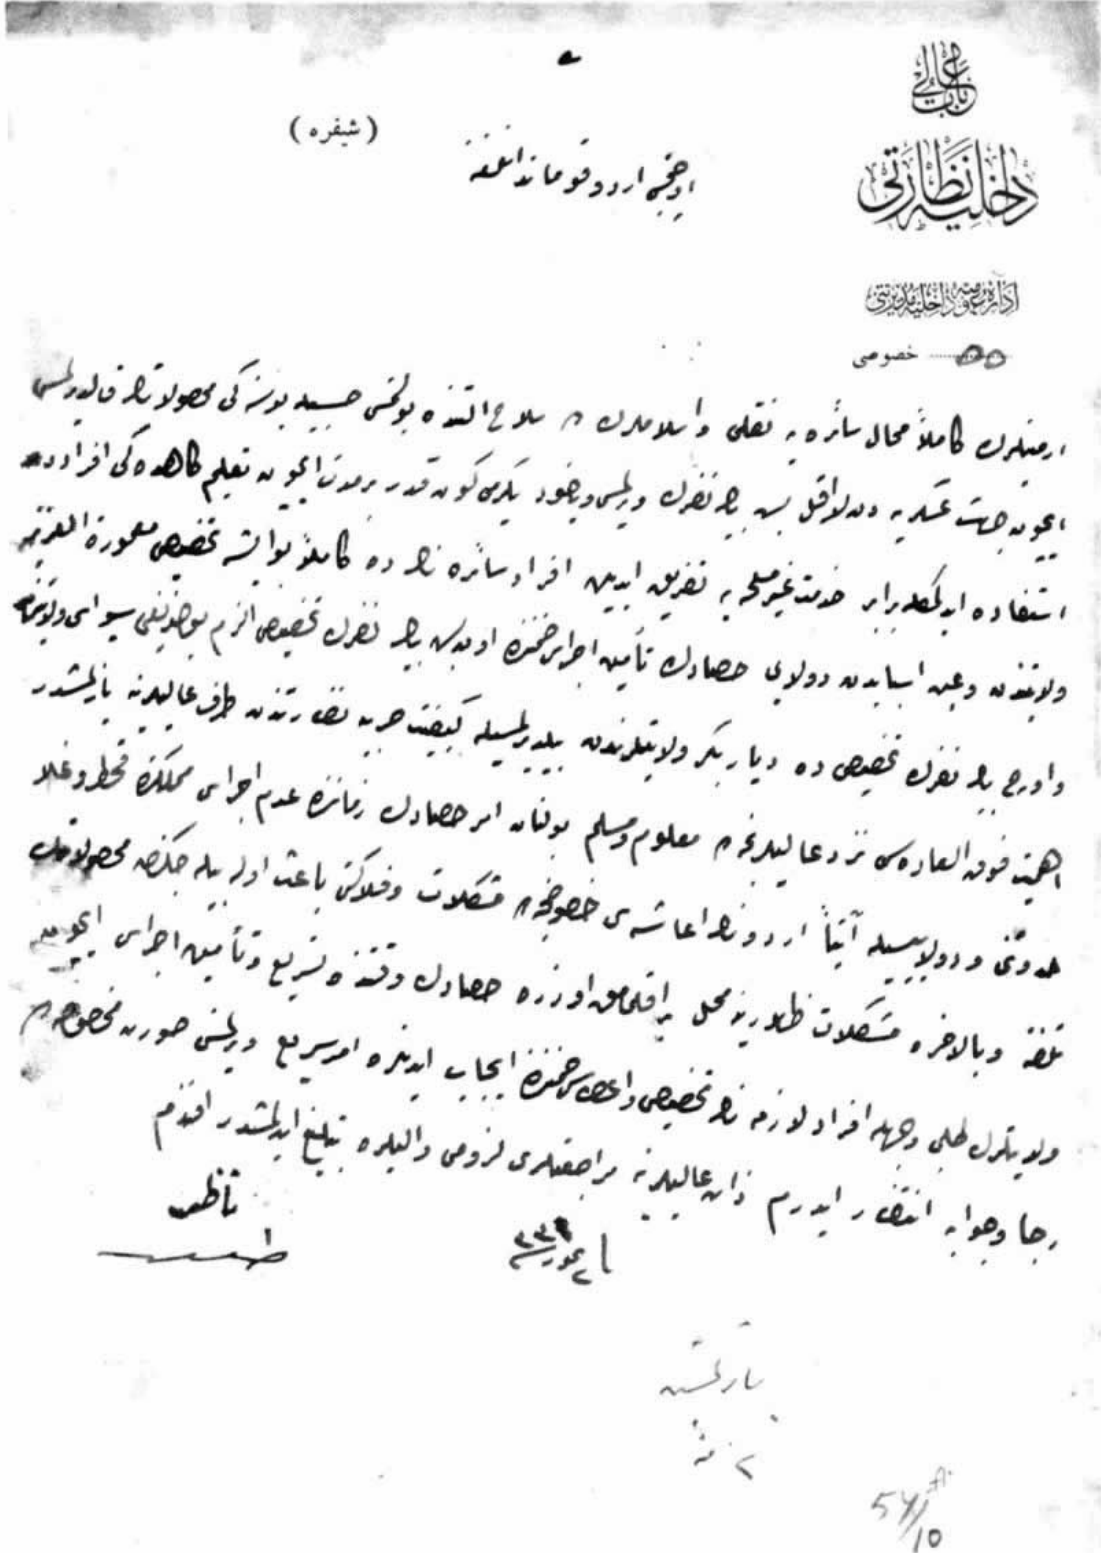 باب عالی
داخلیه نظارتی
اداره عمومیه داخلیه مدیریتی
خصوصی
(شیفره)
اوچنجی اردو قوماندانلغنه
ارمنیلرك كاملاً محال سائره یه نقلی و اسلاملرك ده سلاح التنده بولنمسی حسبیله بو سنه كی محصولاتك قالدیرلمسی
ایچون جهت عسكریه دن لااقل بش بیك نفرك ویرلمسی ویاخود یكرمی كون قدر بر مدت ایچون تعلیمكاهده كی افراددن
استفاده ایدلمكله برابر خدمت غیر مسلحه یه تفریق ایدیلن افراد سائره نك ده كاملاً بو ایشه تخصیصی معمورة العزیز
ولایتندن وعین اسبابدن دولایی حصادك تأمین اجراسی ضمننده اون بش بیك نفرك تخصیصی الزم سیواس ولایتندن
و اوچ بیك نفرك تخصیصی ده دیاربكر ولایتلرندن بیلدیرلمسیله كیفیت حربیه نظارتندن طرف عالیلرینه یازلمشدر
اهمیت فوق العاده سی نزد عالیلرنجه ده معلوم ومسلم بولنان امر حصادك زماننده عدم اجراسی مملكتده قحط وغلا
حدوثنی و دولاییسیله آتیاً اردونك اعاشه سی خصوصنجه ده مشكلات وفلاكتی باعث اوله بیله جكندن محصولاتك
تلفنه وبالاخره مشكلات ظهورینه محل براقلمامق اوزره حصادك وقتنده تسریع وتأمین اجراسی ایچون
ولایتلرك طلبی وجهله افراد لازمه نك تخصیصی و اعطاسی ضمننده ایجاب ایدنلره امر سریع ویرلمسی صورت مخصوصه ده
رجا وجوابه انتظار ایدرم ذات عالیلرینه مراجعتلری لزومی والیلره تبلیغ ایدلمشدر افندم
ناظر
طلعت
فی ٢ تموز سنه ٣٣١
یازلمشدر
٢ منه
54/10